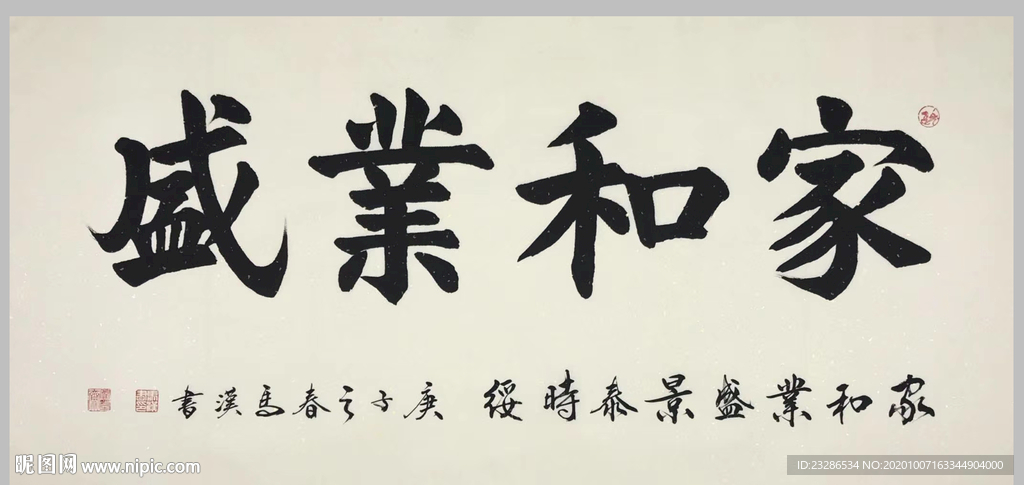 家和業盛
家和業盛景泰時綏 庚子之春馬漢書
昵图网 www.nipic.com
ID:23286534 NO:20201007163344904000